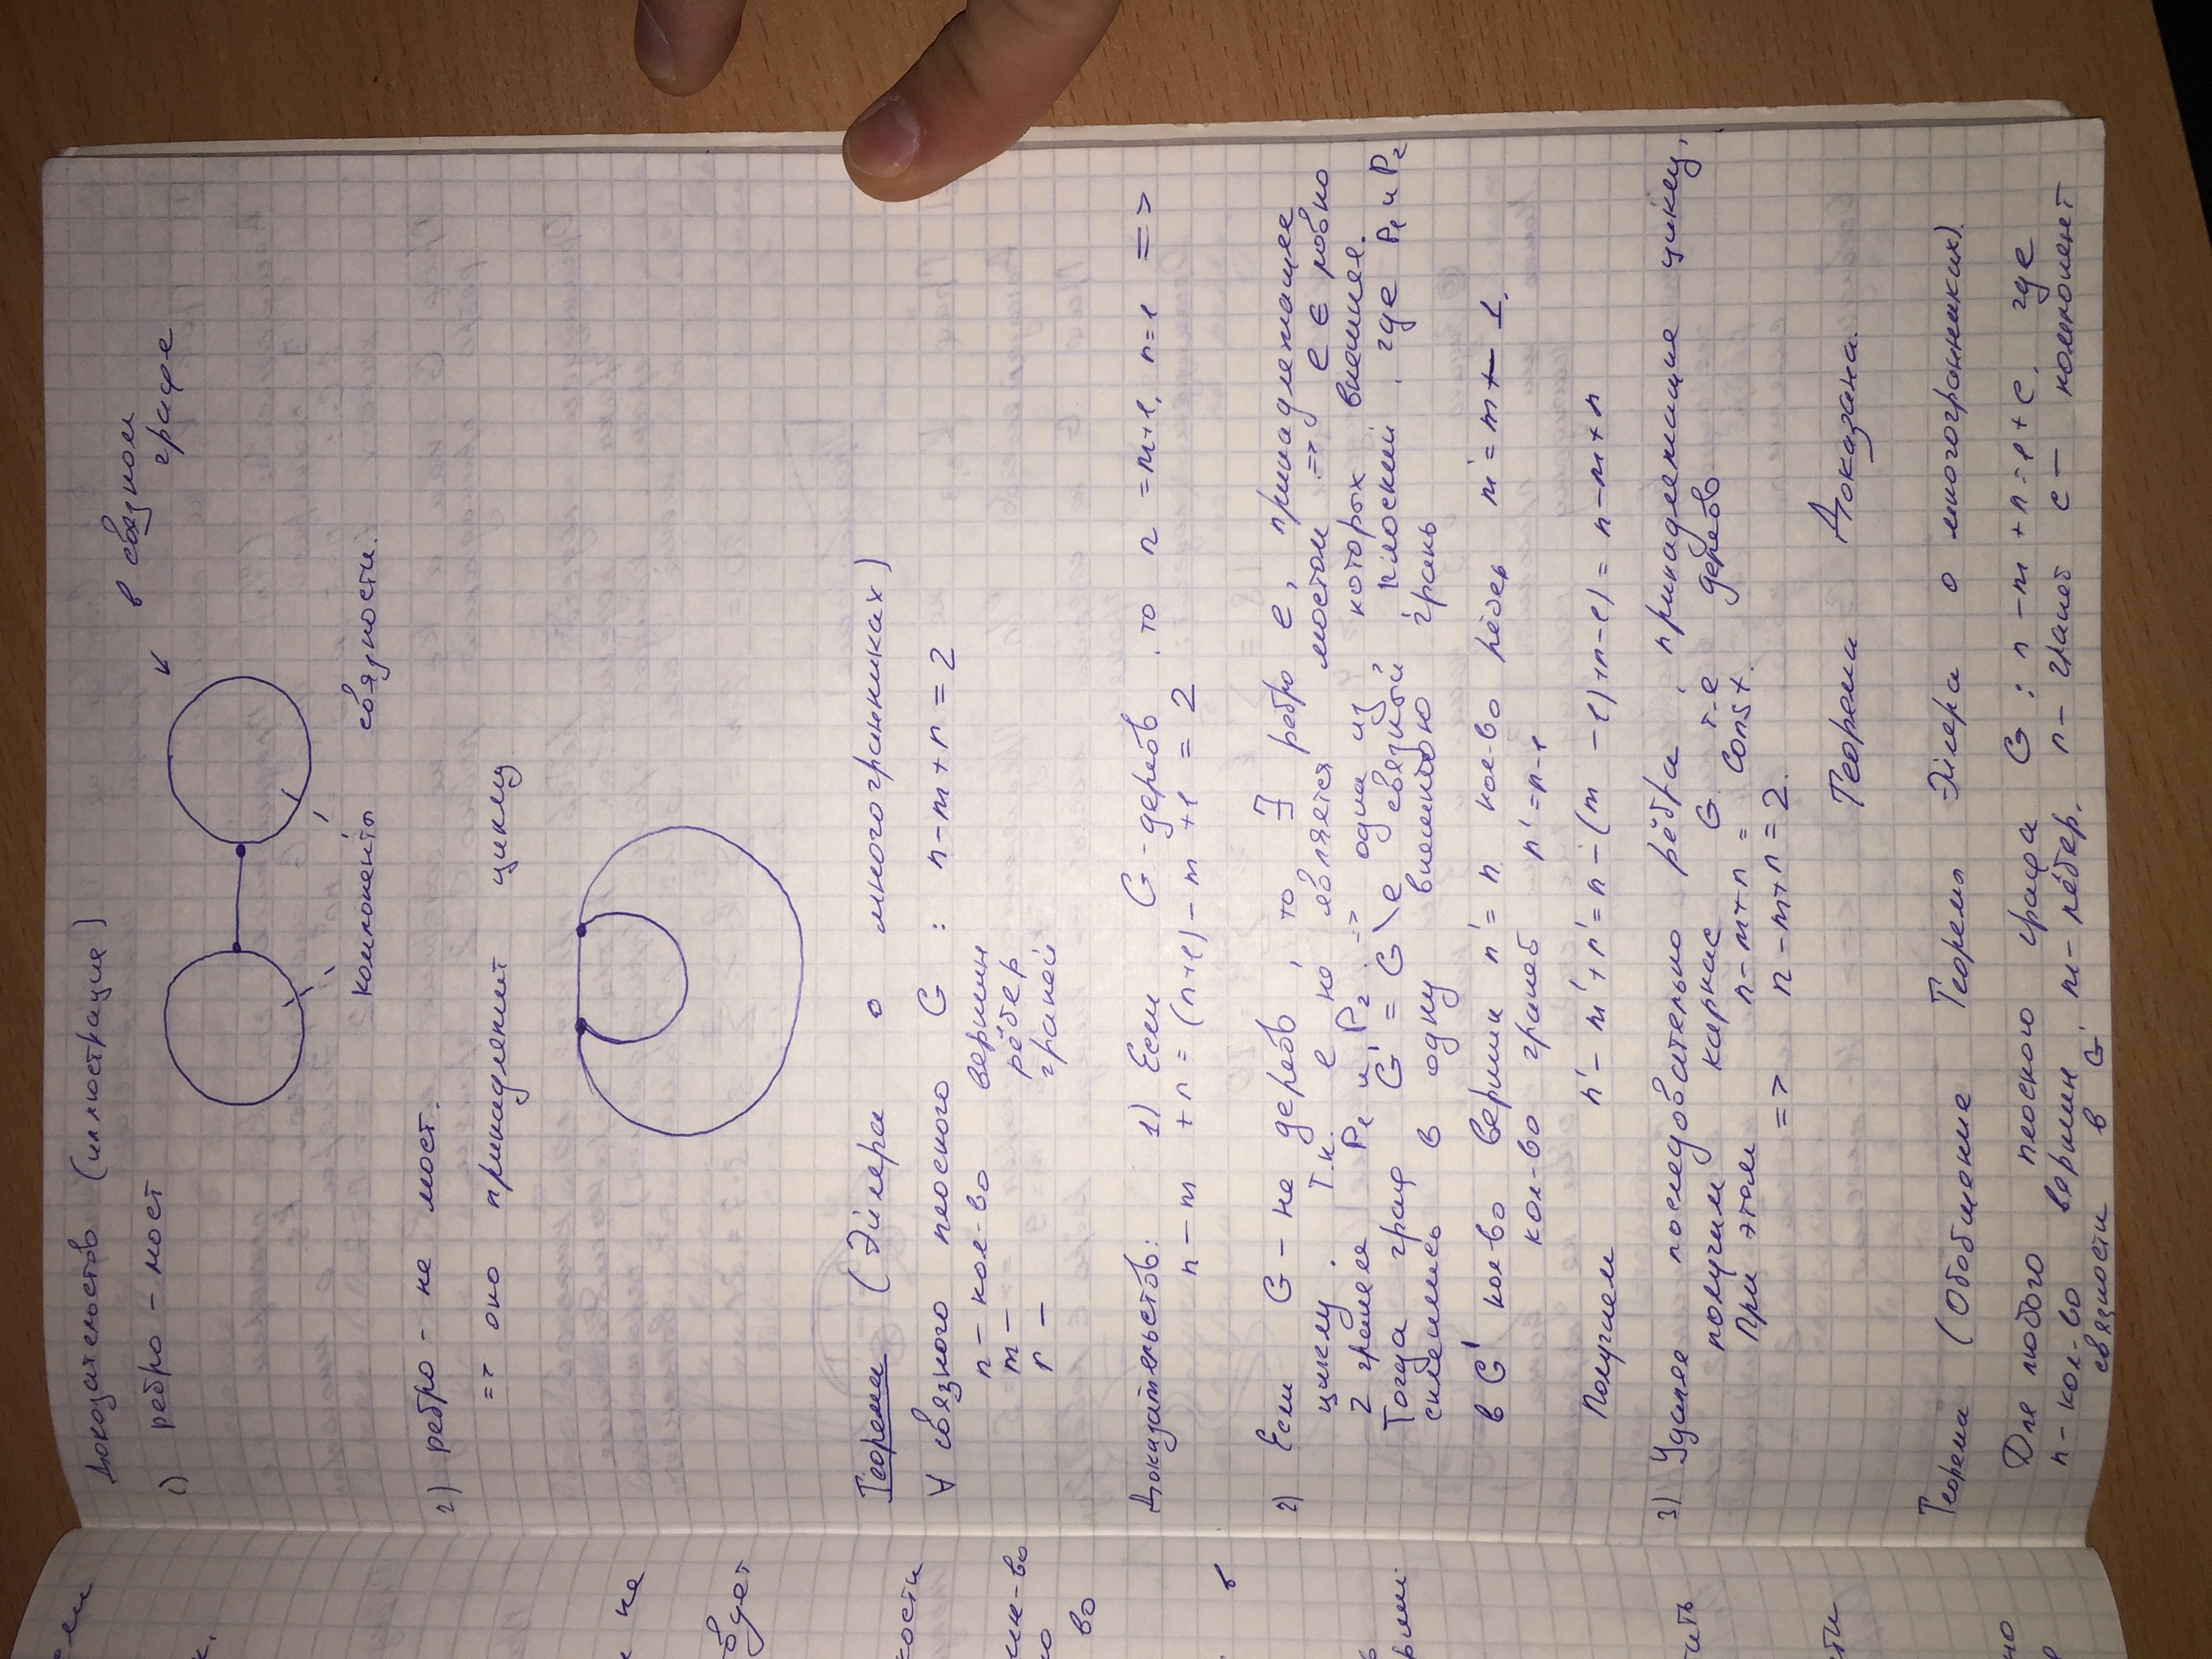 Доказательство (иллюстрация)
в связном
графе
1) ребро - мост
компоненты связности.
2) ребро - не мост.
=> оно принадлежит циклу
Теорема (Эйлера о многогранниках)
∀ связного плоского G : n-m+r = 2
n - кол-во вершин
m - рёбер
r - граней
Доказательство: 1) Если G-дерево, то n = m+1, r=1 =>
n - m + r = (n+1) - m + 1 = 2
2) Если G - не дерево, то ∃ ребро e, принадлежащее
циклу. Т.к. e не является мостом => e ∈ ровно
2 граням P1 и P2. => одна из которых внешняя.
Тогда граф G' = G\e связный, плоский, где P1 и P2
склеились в одну внешнюю грань
в G' кол-во вершин n' = n кол-во рёбер m' = m - 1.
кол-во граней r' = r-1
Получаем n' - m' + r' = n - (m - 1)+r-1) = n-m+r
3) Удаляя последовательно рёбра, принадлежащие циклу,
получим каркас G т.е дерево
При этом n-m+r = const.
=> n-m+r = 2.
Теорема Доказана.
Теорема (Обобщение Теоремы Эйлера о многогранниках).
Для любого плоского графа G : n - m + r = 1 + c, где
n - кол-во вершин, m - рёбер, r - граней c - компонент
связности в G
ли
к.
не
вует
кости
ин-во
во
в
ать
сти
но